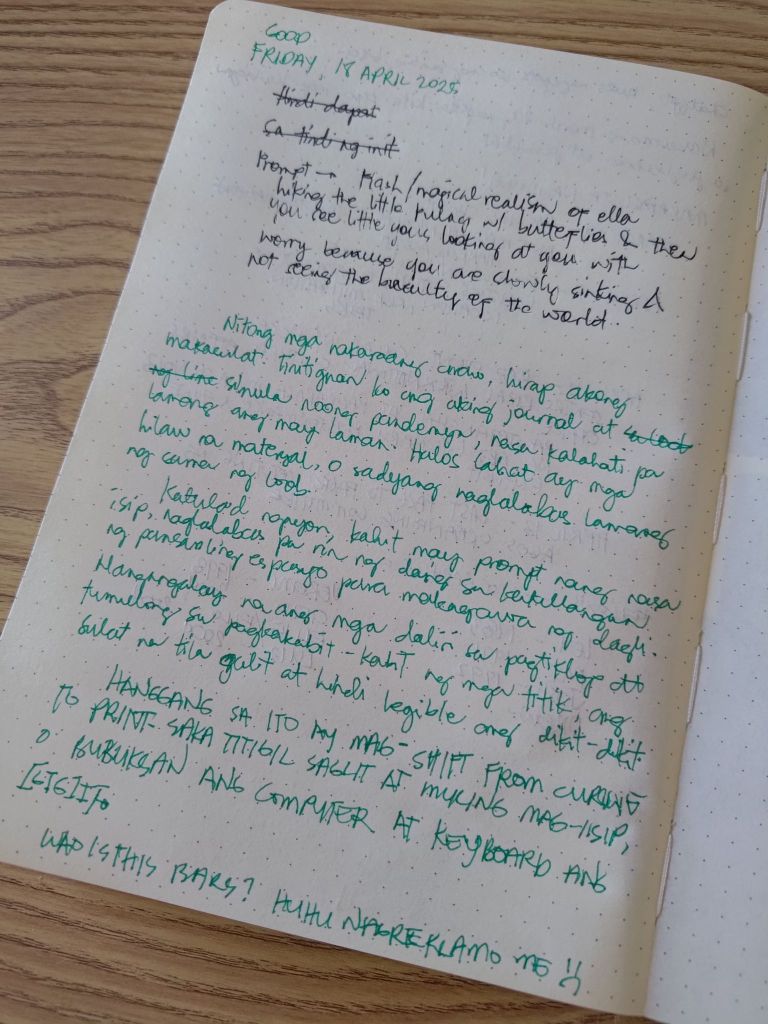 GOOD
FRIDAY, 18 APRIL 2025
Hindi dapat
Sa tindi ng init
Prompt → Flash/magical realism of ella
hiking the little pulag w/ butterflies & then
you see little yous looking at you with
worry because you are slowly sinking &
not seeing the beauty of the world..
Nitong mga nakaraang araw, hirap akong
makasulat. Tinitignan ko ang aking journal at
ng line simula noong pandemya, nasa kalahati pa
lamang ang may laman. Halos lahat ay mga
hilaw na materyal, o sadyang naglalabas lamang
ng sama ng loob.
Katulad ngayon, kahit may prompt nang nasa
isip, naglalabas pa rin ng dagli sa kakulangan
ng pansariling espasyo para makagawa ng dagli.
Nangangalay na ang mga daliri sa pagtiklop at
tumulong sa pagkakabit-kabit ng mga titik, ang
sulat na tila galit at hindi legible ang dikit-dikit.
HANGGANG SA ITO AY MAG-SHIFT FROM CURSIVE
TO PRINT- SAKA TITIGIL SAGLIT AT MULING MAG-IISIP,
O BUBUKSAN ANG COMPUTER AT KEYBOARD ANG
WAD IS THIS BARS? HUHU NAGREKLAMO ME